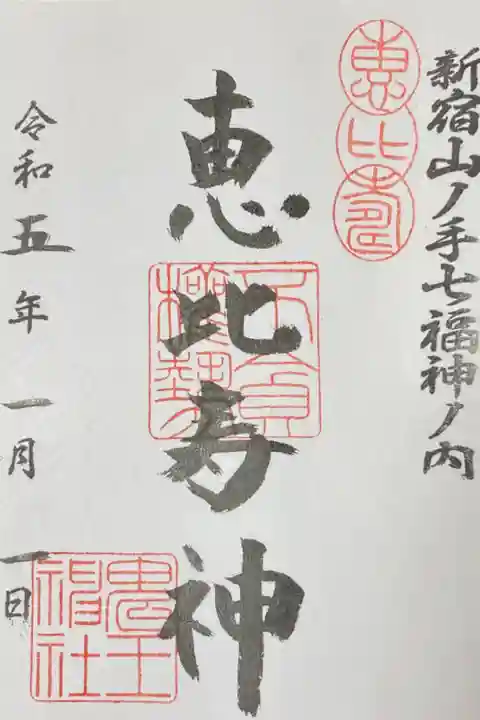 新宿山ノ手七福神ノ内
恵比寿
恵比寿神
鬼王神社
令和五年一月一日